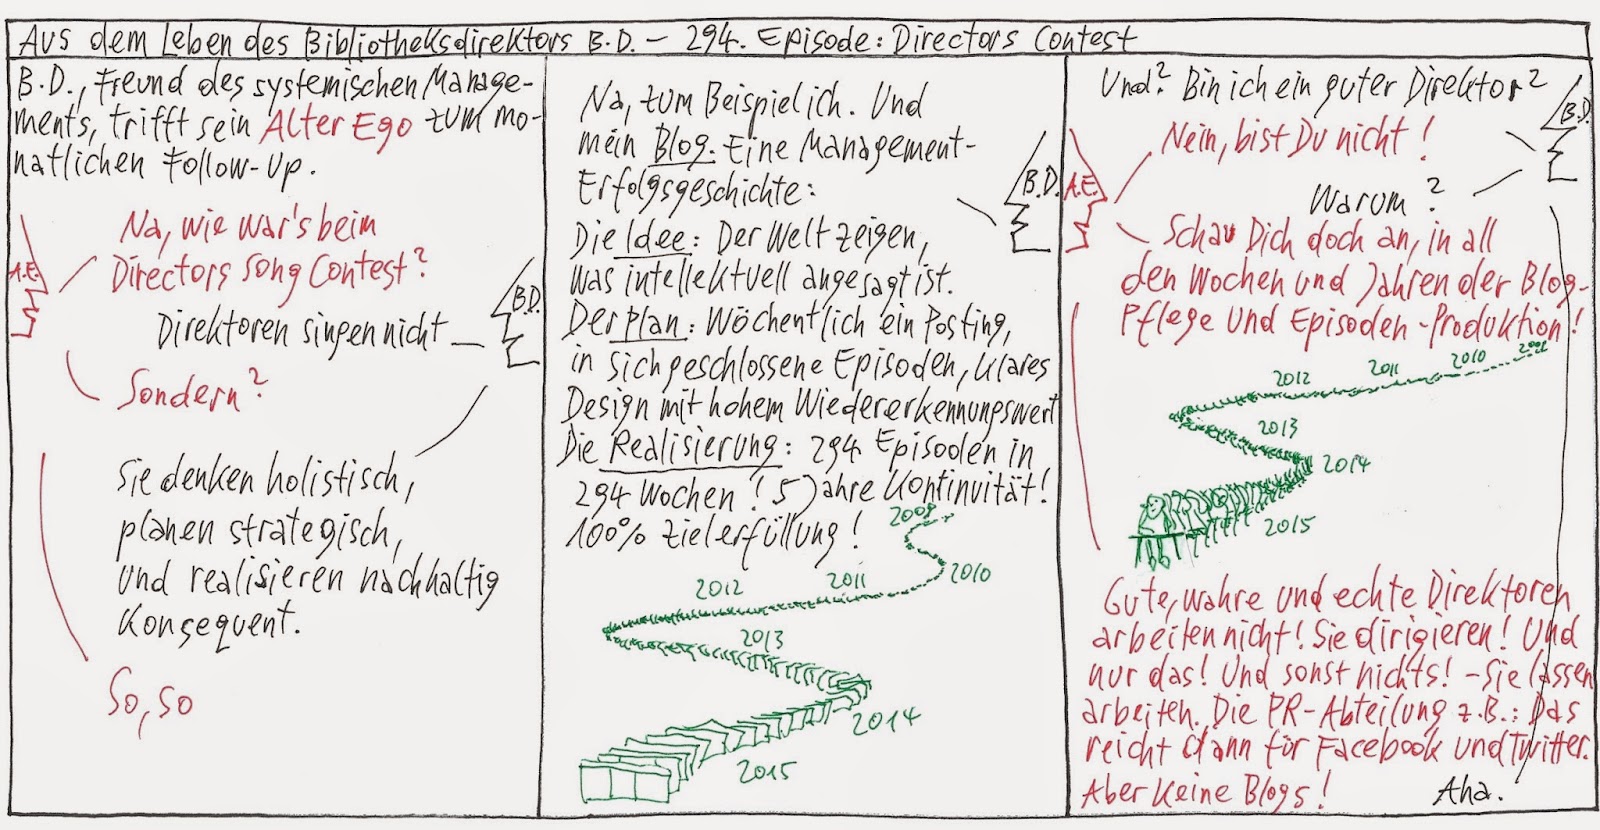 Aus dem Leben des Bibliotheksdirektors B.D. – 294. Episode: Directors Contest
B.D., Freund des systemischen Manage-
ments, trifft sein Alter Ego zum mo-
natlichen Follow-Up.
Na, wie war's beim
Directors Song Contest?
A.E.
B.D.
Direktoren singen nicht
Sondern?
Sie denken holistisch,
planen strategisch,
und realisieren nachhaltig
konsequent.
So, so
Na, zum Beispiel ich. Und
mein Blog. Eine Management-
Erfolgsgeschichte:
B.D.
Die Idee: Der Welt zeigen,
was intellektuell angesagt ist.
Der Plan: Wöchentlich ein Posting,
in sich geschlossene Episoden, klares
Design mit hohem Wiedererkennungswert
Die Realisierung: 294 Episoden in
294 Wochen! 5 Jahre Kontinuität!
100% Zielerfüllung!
2009
2010
2011
2012
2013
2014
2015
Und? Bin ich ein guter Direktor?
B.D.
Nein, bist Du nicht!
A.E.
Warum?
Schau Dich doch an, in all
den Wochen und Jahren der Blog-
Pflege und Episoden-Produktion!
2009
2010
2011
2012
2013
2014
2015
Gute, wahre und echte Direktoren
arbeiten nicht! Sie dirigieren! Und
nur das! Und sonst nichts! – Sie lassen
arbeiten. Die PR-Abteilung z.B.: Das
reicht dann für Facebook und Twitter.
Aber keine Blogs!
Aha.